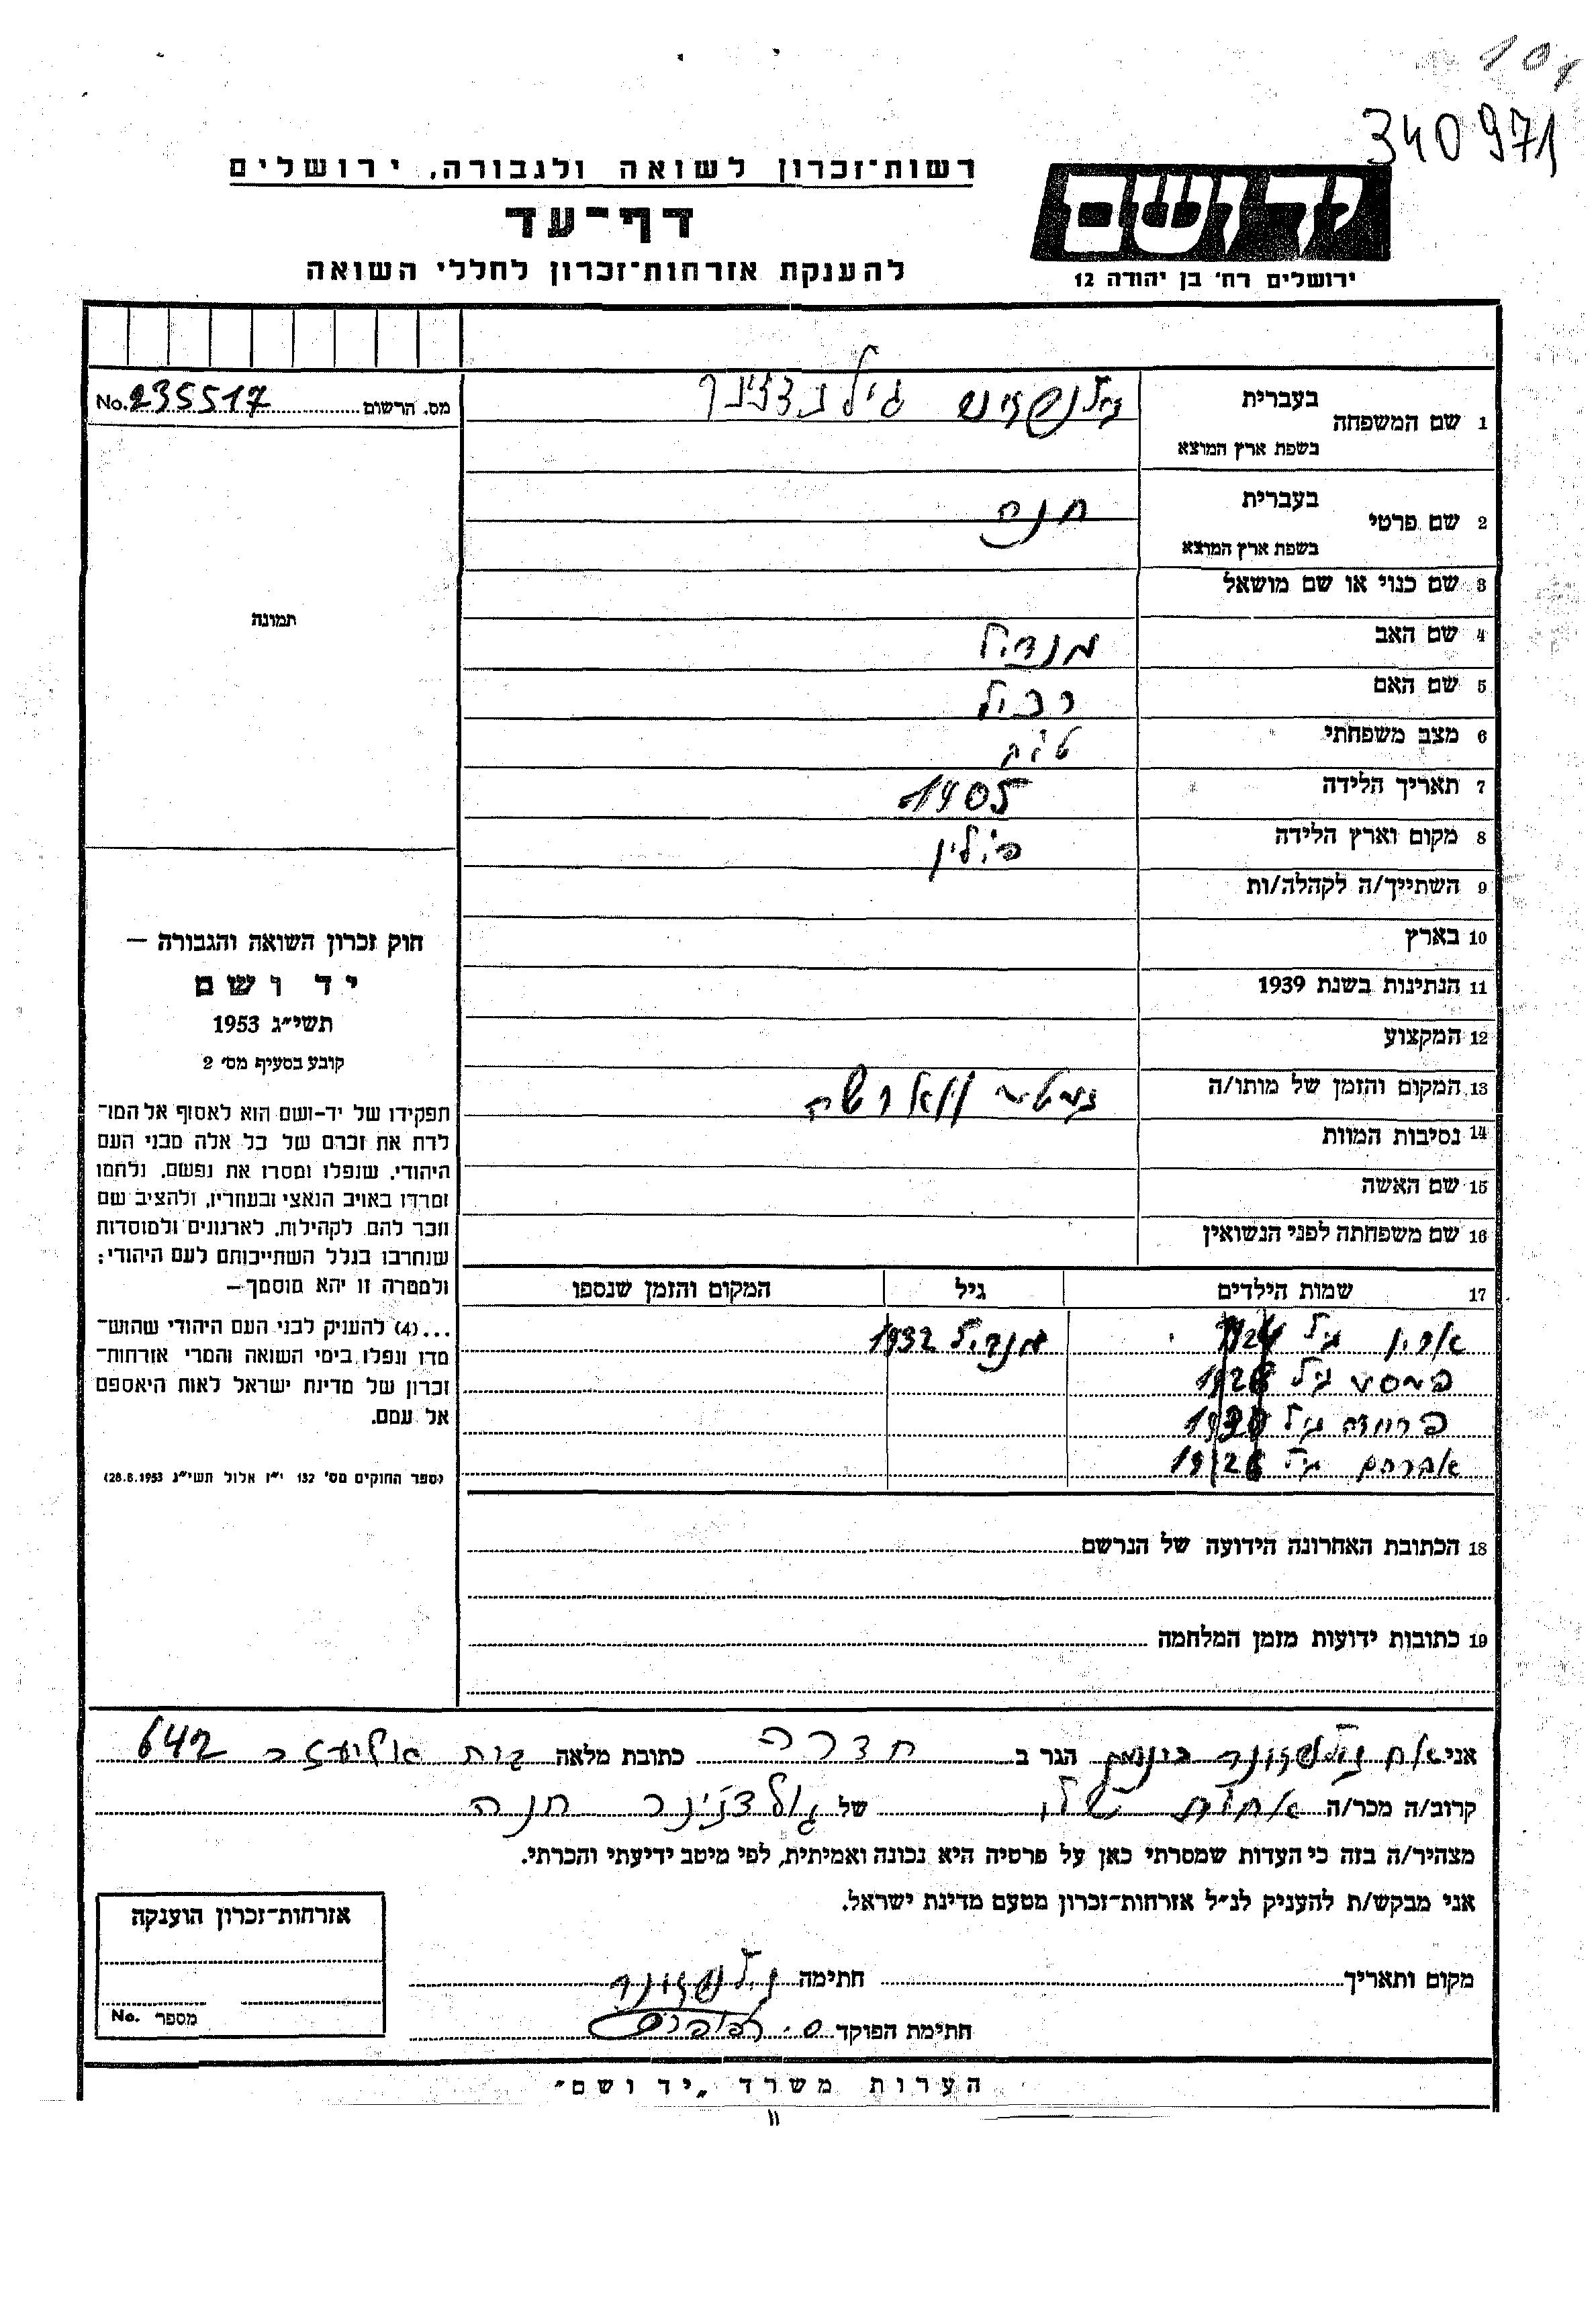 340971
רשות־זכרון לשואה ולגבורה, ירושלים
יד ושם
דף־עד
ירושלים רח' בן יהודה 12
להענקת אזרחות־זכרון לחללי השואה
מס. הרשום No. 235517
תמונה
חוק זכרון השואה והגבורה —
יד ושם
תשי״ג 1953
קובע בסעיף מס' 2
תפקידו של יד-ושם הוא לאסוף אל המו־
לדת את זכרם של כל אלה מבני העם
היהודי, שנפלו ומסרו את נפשם, נלחמו
ומרדו באויב הנאצי ובעוזריו, ולהציב שם
וזכר להם, לקהילות, לארגונים ולמוסדות
שנחרבו בגלל השתייכותם לעם היהודי;
ולמטרה זו יהא מוסמך—
...(4) להעניק לבני העם היהודי שהוש־
מדו ונפלו בימי השואה והמרי אזרחות־
זכרון של מדינת ישראל לאות היאספם
אל עמם.
(ספר החוקים מס' 132 י״ז אלול תשי״ג 28.8.1953)
1 שם המשפחה בעברית
בשפת ארץ המוצא
2 שם פרטי בעברית חנה
בשפת ארץ המוצא
3 שם כנוי או שם מושאל
4 שם האב מנדיל
5 שם האם
6 מצב משפחתי
7 תאריך הלידה 1905
8 מקום וארץ הלידה פולין
9 השתייך/ה לקהלה/ות
10 בארץ
11 הנתינות בשנת 1939
12 המקצוע
13 המקום והזמן של מותו/ה גיטו ווארשה
14 נסיבות המוות
15 שם האשה
16 שם משפחתה לפני הנשואין
17 שמות הילדים גיל המקום והזמן שנספו
גיל מנדיל 1932
גיל
גיל
אברהם גיל
18 הכתובת האחרונה הידועה של הנרשם
19 כתובות ידועות מזמן המלחמה
אני הגר ב חדרה כתובת מלאה בית אליעזר 642
קרוב/ה מכר/ה של גולדצינר חנה
מצהיר/ה בזה כי העדות שמסרתי כאן על פרטיה היא נכונה ואמיתית, לפי מיטב ידיעתי והכרתי.
אני מבקש/ת להעניק לנ״ל אזרחות־זכרון מטעם מדינת ישראל.
מקום ותאריך חתימה
חתימת הפוקד
אזרחות־זכרון הוענקה
מספר No.
הערות משרד „יד ושם"